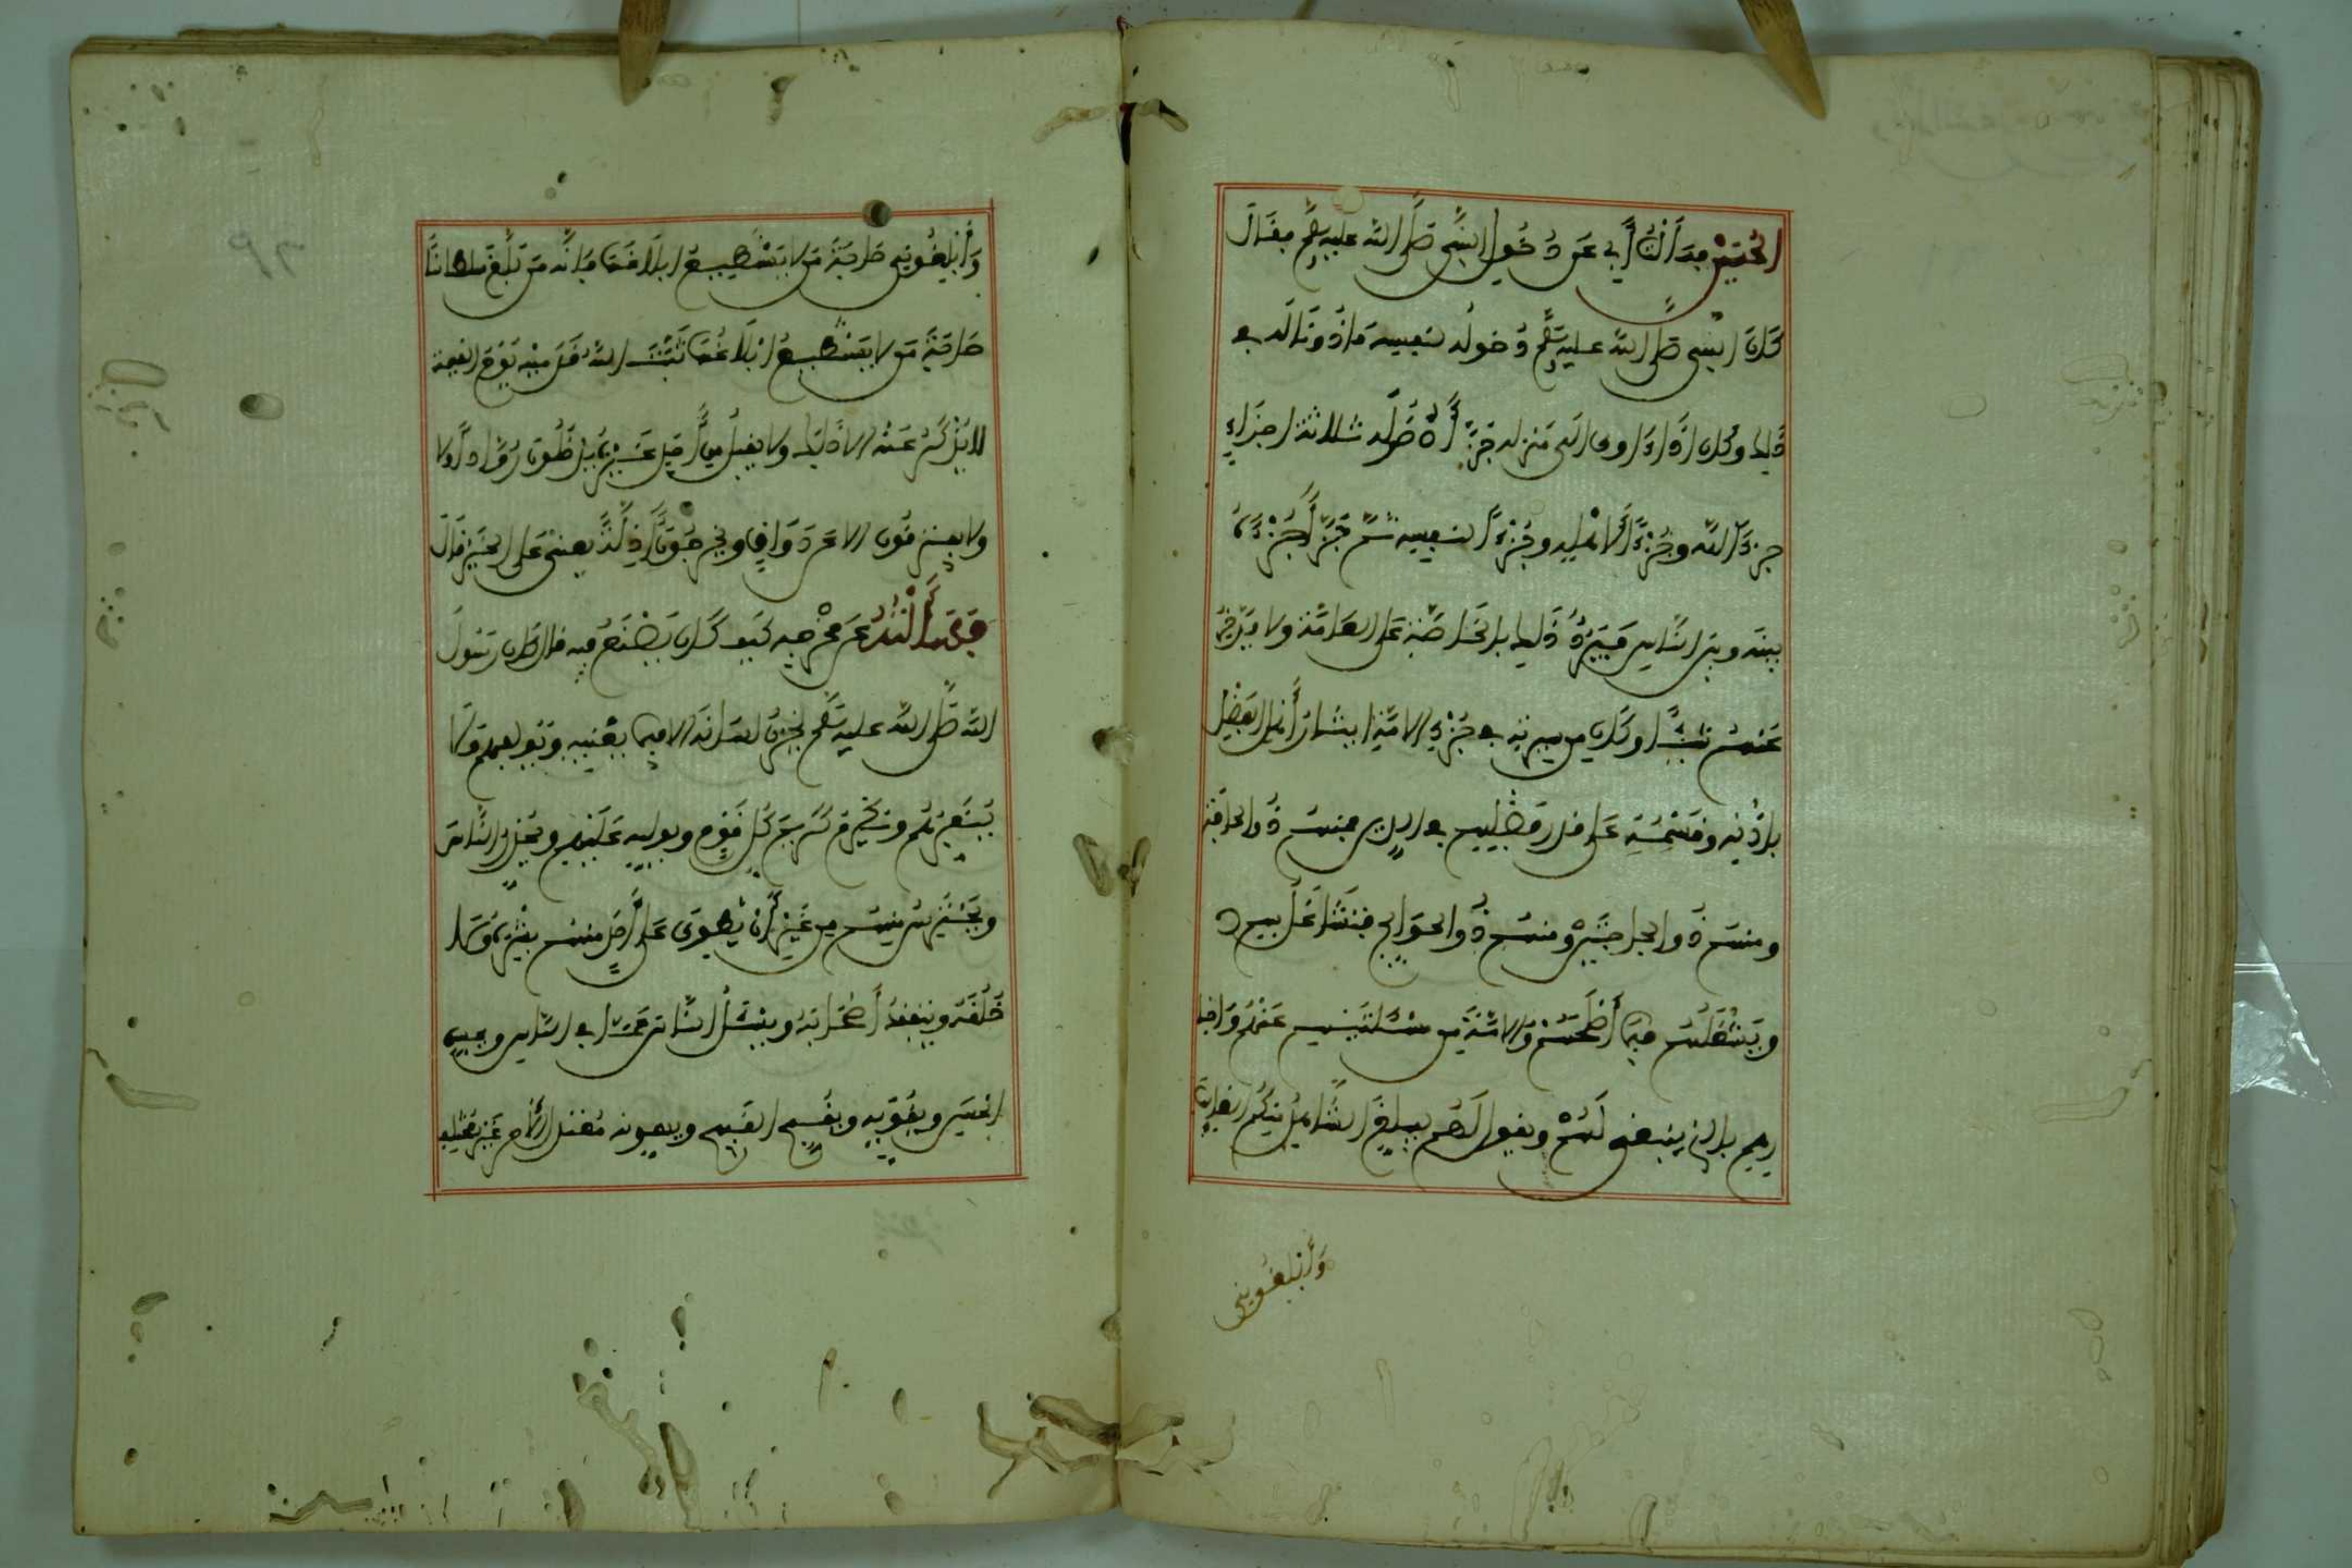 الحسين فسألت أبي عن دخول النبي صلى الله عليه وسلم فقال
كان النبي صلى الله عليه وسلم دخوله لنفسه ماذونا له في
ذلك وكان اذا اوى الى منزله جزأه دخوله ثلاثة اجزاء
جزءا لله وجزءا لأهله وجزءا لنفسه ثم جزأ جزءه
بينه وبين الناس فيرد ذلك بالخاصة على العامة ولا يدخر
عنهم شيئا وكان من سيرته في جزء الامة ايثار أهل الفضل
باذنه وقسمته على قدر فضلهم في الدين فمنهم ذو الحاجة
ومنهم ذو الحاجتين ومنهم ذو الحوايج فيتشاغل بهم
ويشغلهم فيما أصلحهم والامة من مسألتهم عنهم واخبا
رهم بالذي ينبغي لهم ويقول لهم ليبلغ الشاهد منكم الغايب
وأبلغوني
وأبلغوني حاجة من لا يستطيع ابلاغها فإنه من بلغ سلطانا
حاجة من لا يستطيع ابلاغها ثبت الله قدميه يوم القيمة
لا يذكر عنده الا ذلك ولا يقبل من أحد غيره يدخلون روادا
ولا يفترقون الا عن ذواق ويخرجون أدلة يعني على الخير قال
فسألته عن مخرجه كيف كان يصنع فيه قال كان رسول
الله صلى الله عليه وسلم يخزن لسانه الا فيما يعنيه ويؤلفهم ولا
ينفرهم ويكرم كريم كل قوم ويوليه عليهم ويحذر الناس
ويحترس منهم من غير أن يطوي على أحد منهم بشره ولا
خلقه ويتفقد أصحابه ويسئل الناس عما في الناس ويحسن
الحسن ويقويه ويقبح القبيح ويوهنه معتدل الأمر غير مختلف